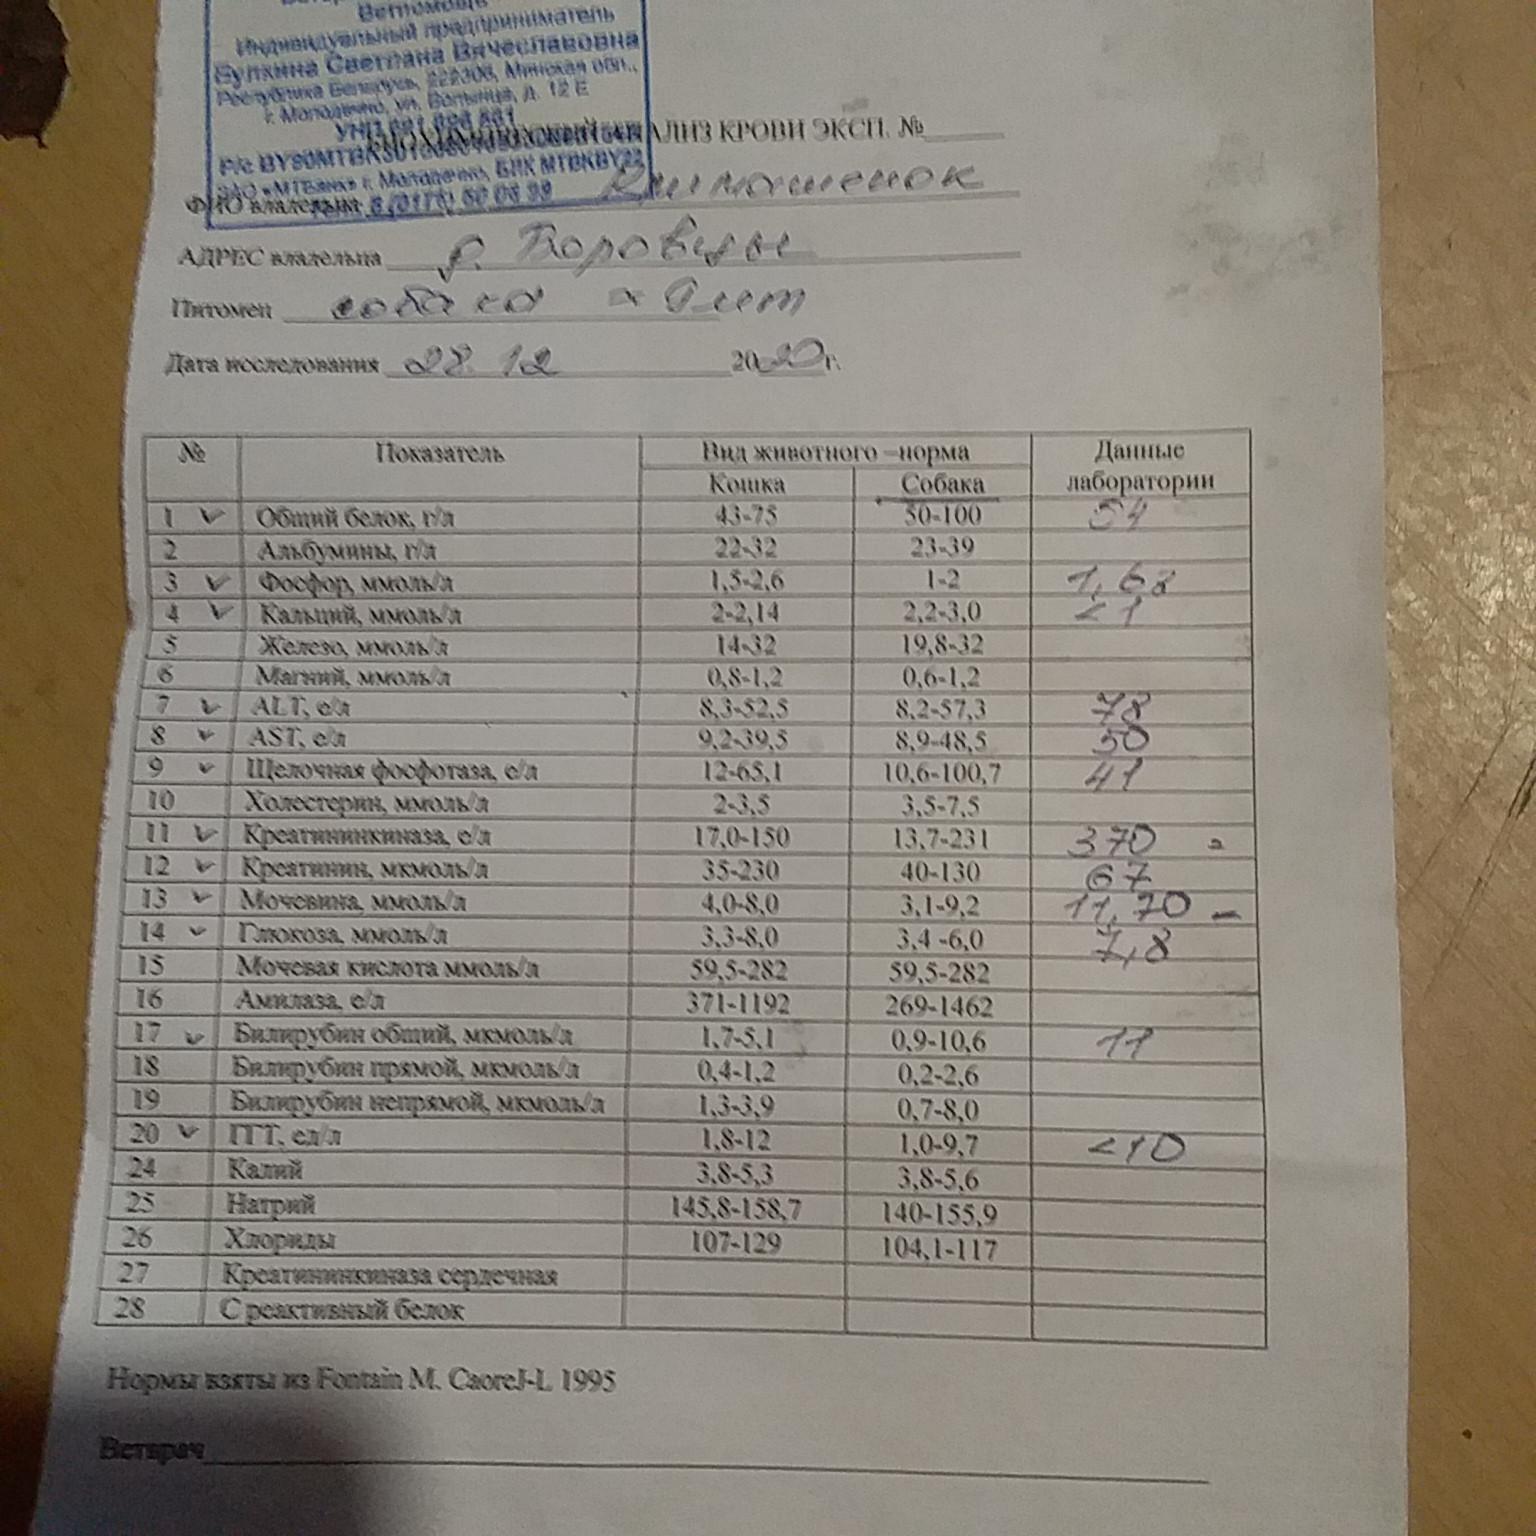 Ветпомощь
Индивидуальный предприниматель
Булкина Светлана Вячеславовна
Республика Беларусь, 222306, Минская обл.,
г. Молодечно, ул. Волынца, д. 12 Е
УНП
БИОХИМИЧЕСКИЙ АНАЛИЗ КРОВИ ЭКСП. №
Р/с
ЗАО «МТБанк» г. Молодечно, БИК MTBKBY22
ФИО владельца
АДРЕС владельца д. Боровцы
Питомец собака 9 лет
Дата исследования 28. 12 2020г.
№ Показатель Вид животного –норма Данные лаборатории
Кошка Собака
1 Общий белок, г/л 43-75 50-100 54
2 Альбумины, г/л 22-32 23-39
3 Фосфор, ммоль/л 1,5-2,6 1-2 1,68
4 Кальций, ммоль/л 2-2,14 2,2-3,0 <1
5 Железо, ммоль/л 14-32 19,8-32
6 Магний, ммоль/л 0,8-1,2 0,6-1,2
7 ALT, е/л 8,3-52,5 8,2-57,3 78
8 AST, е/л 9,2-39,5 8,9-48,5 50
9 Щелочная фосфотаза, е/л 12-65,1 10,6-100,7 41
10 Холестерин, ммоль/л 2-3,5 3,5-7,5
11 Креатининкиназа, е/л 17,0-150 13,7-231 370
12 Креатинин, мкмоль/л 35-230 40-130 67
13 Мочевина, ммоль/л 4,0-8,0 3,1-9,2 11,70
14 Глюкоза, ммоль/л 3,3-8,0 3,4 -6,0 7,8
15 Мочевая кислота ммоль/л 59,5-282 59,5-282
16 Амилаза, е/л 371-1192 269-1462
17 Билирубин общий, мкмоль/л 1,7-5,1 0,9-10,6 11
18 Билирубин прямой, мкмоль/л 0,4-1,2 0,2-2,6
19 Билирубин непрямой, мкмоль/л 1,3-3,9 0,7-8,0
20 ГГТ, ед/л 1,8-12 1,0-9,7 <10
24 Калий 3,8-5,3 3,8-5,6
25 Натрий 145,8-158,7 140-155,9
26 Хлориды 107-129 104,1-117
27 Креатининкиназа сердечная
28 С реактивный белок
Нормы взяты из Fontain M. CaoreJ-L 1995
Ветврач